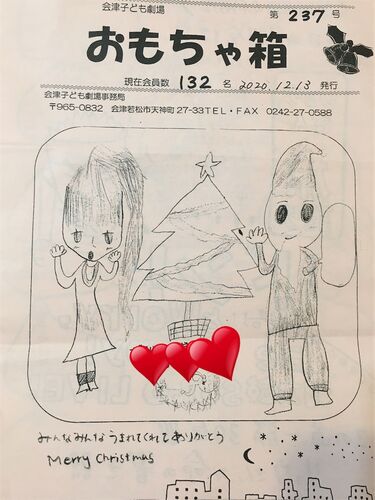 会津子ども劇場
第 237 号
おもちゃ箱
現在会員数 132 名 2020.12.13 発行
会津子ども劇場事務局
〒965-0832 会津若松市天神町27-33TEL・FAX 0242-27-0588
みんなみんなうまれてくれてありがとう
Merry Christmas